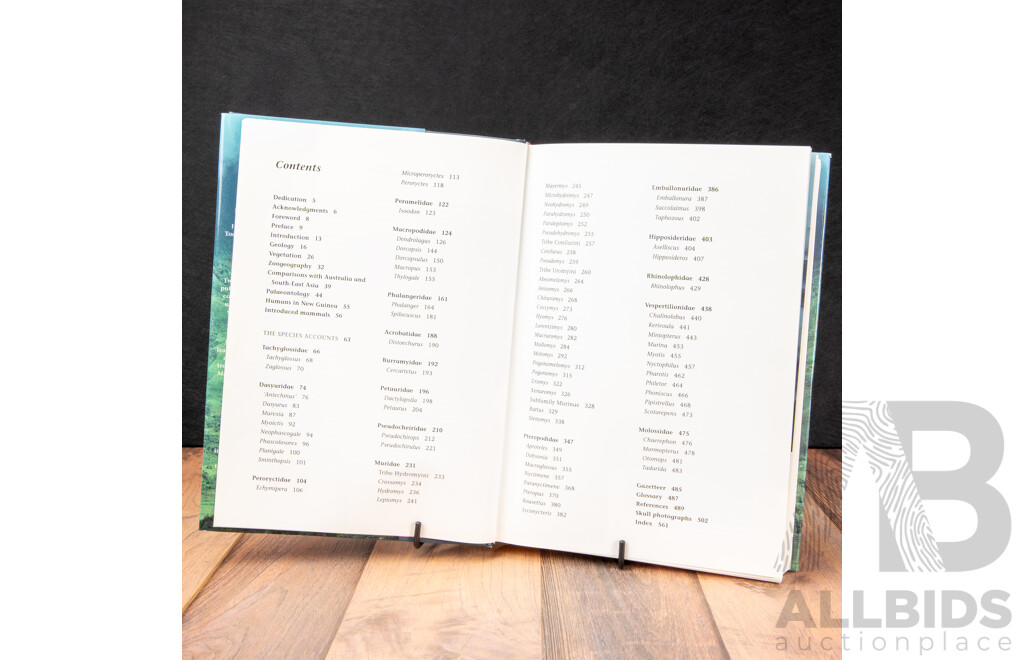 Contents
Dedication 5
Acknowledgments 6
Foreword 8
Preface 9
Introduction 13
Geology 16
Vegetation 26
Zoogeography 32
Comparisons with Australia and
South-East Asia 39
Palaeontology 44
Humans in New Guinea 55
Introduced mammals 56
THE SPECIES ACCOUNTS 63
Tachyglossidae 66
Tachyglossus 68
Zaglossus 70
Dasyuridae 74
'Antechinus' 76
Dasyurus 83
Murexia 87
Myoictis 92
Neophascogale 94
Phascolosorex 96
Planigale 100
Sminthopsis 101
Peroryctidae 104
Echymipera 106
Microperoryctes 113
Peroryctes 118
Peramelidae 122
Isoodon 123
Macropodidae 124
Dendrolagus 126
Dorcopsis 144
Dorcopsulus 150
Macropus 153
Thylogale 155
Phalangeridae 161
Phalanger 164
Spilocuscus 181
Acrobatidae 188
Distoechurus 190
Burramyidae 192
Cercartetus 193
Petauridae 196
Dactylopsila 198
Petaurus 204
Pseudocheiridae 210
Pseudochirops 212
Pseudochirulus 221
Muridae 231
Tribe Hydromyini 233
Crossomys 234
Hydromys 236
Leptomys 241
Mayermys 245
Microhydromys 247
Neohydromys 249
Parahydromys 250
Paraleptomys 252
Pseudohydromys 255
Tribe Conilurini 257
Conilurus 258
Pseudomys 259
Tribe Uromyini 260
Abeomelomys 264
Anisomys 266
Chiruromys 268
Coccymys 273
Hyomys 276
Lorentzimys 280
Macruromys 282
Mallomys 284
Melomys 292
Pogonomelomys 312
Pogonomys 315
Uromys 322
Xenuromys 326
Subfamily Murinae 328
Rattus 329
Stenomys 338
Pteropodidae 347
Aproteles 349
Dobsonia 351
Macroglossus 355
Nyctimene 357
Paranyctimene 368
Pteropus 370
Rousettus 380
Syconycteris 382
Emballonuridae 386
Emballonura 387
Saccolaimus 398
Taphozous 402
Hipposideridae 403
Aselliscus 404
Hipposideros 407
Rhinolophidae 428
Rhinolophus 429
Vespertilionidae 438
Chalinolobus 440
Kerivoula 441
Miniopterus 443
Murina 453
Myotis 455
Nyctophilus 457
Pharotis 462
Philetor 464
Phoniscus 466
Pipistrellus 468
Scotorepens 473
Molossidae 475
Chaerephon 476
Mormopterus 478
Otomops 481
Tadarida 483
Gazetteer 485
Glossary 487
References 489
Skull photographs 502
Index 561
B
ALLBIDS
auctionplace